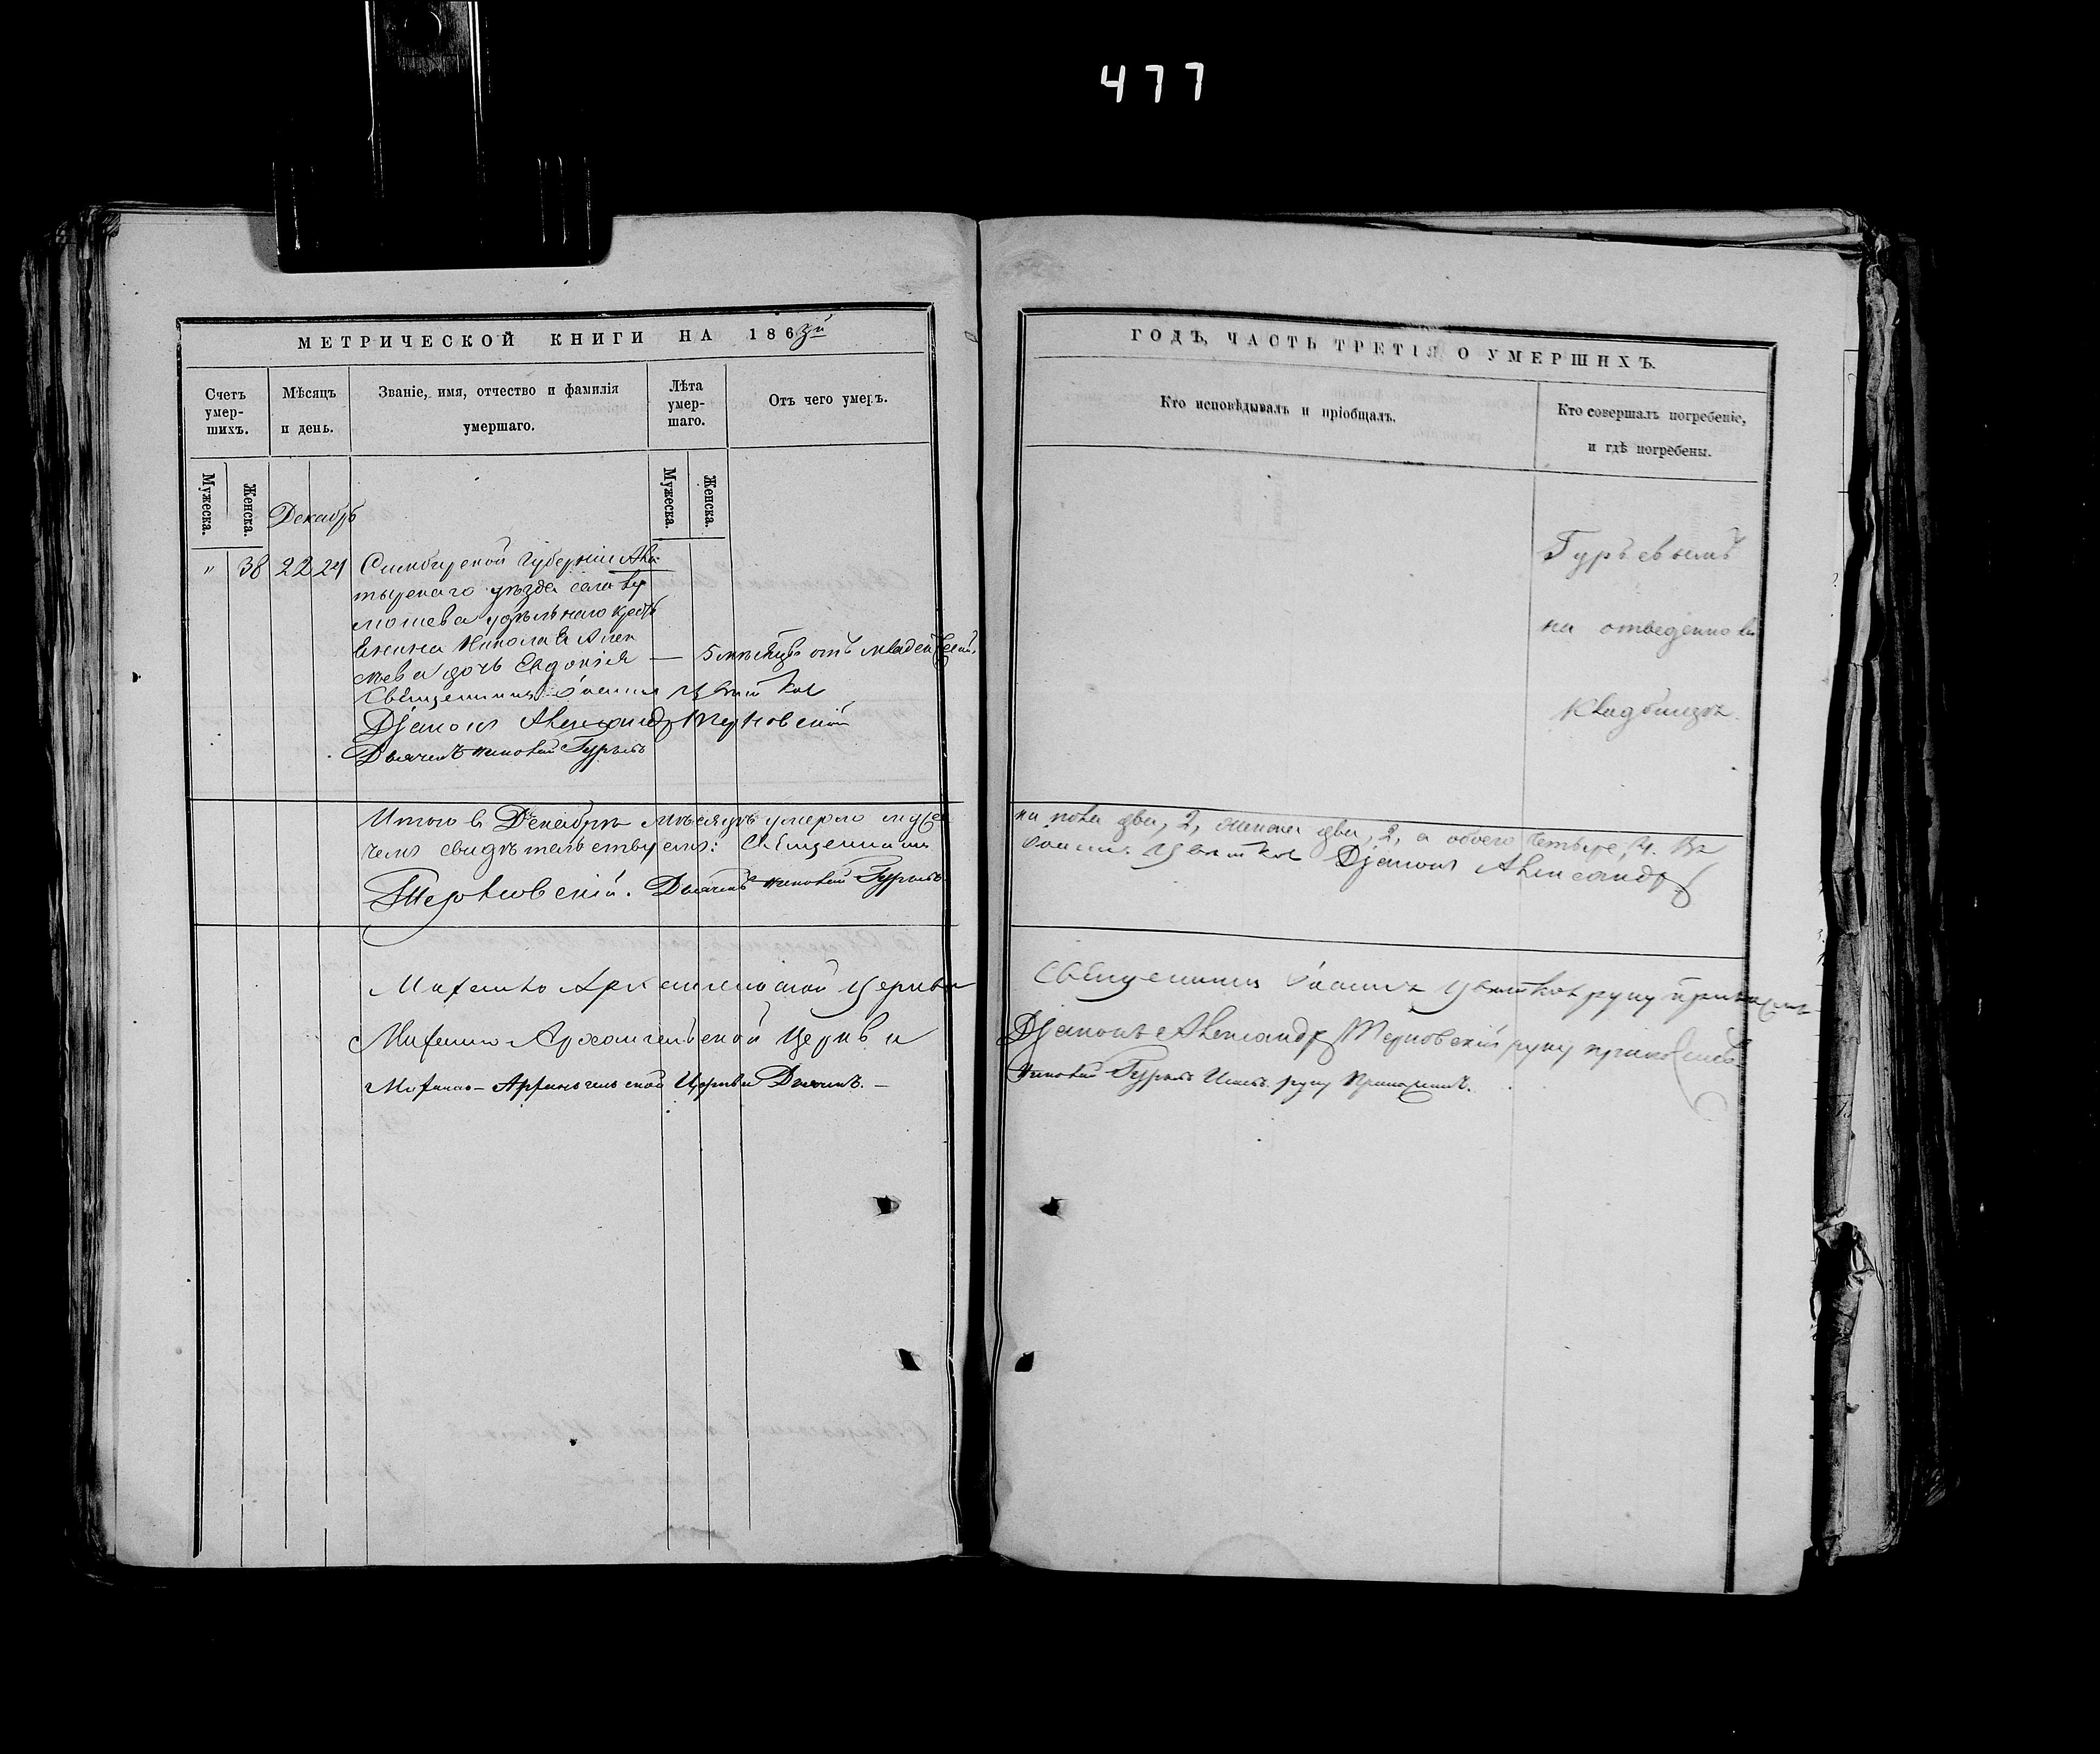 477
МЕТРИЧЕСКОЙ КНИГИ НА 1863й
Счетъ умер-шихъ.
Мѣсяцъ и день.
Званіе, имя, отчество и фамилія умершаго.
Лѣта умер-шаго.
Отъ чего умеръ.
Мужеска.
Женска.
Мужеска.
Женска.
Декабрь
" 38 22 24 Симбирской Губерніи Ала
тырскаго уѣзда села
удѣльнаго кресть
янина Николая Алек
сѣева дочь Евдокія — 5 мѣсяцевъ отъ младенческой
Священникъ Іоаннъ Цвѣтков
Дьяконъ Александръ Терновскій
Дьячекъ Гурьевъ
Итого в Декабрѣ мѣсяцѣ умерло мужес
чемъ свидѣтельствуемъ: Священникъ
Терновскій. Дьячекъ Гурьевъ
Михаило Архангельской церкви
Михаило-Архангельской Церкви
Михаило-Архангельской Церкви Дьячекъ.—
ГОДЪ, ЧАСТЬ ТРЕТІЯ О УМЕРШИХЪ.
Кто исповѣдывалъ и пріобщалъ.
Кто совершалъ погребеніе, и гдѣ погребены.
Гурьевымъ
на отведенномъ
кладбищѣ.
ка пола два, 2, женска два, 2, а обоего четыре, 4. Въ
Іоаннъ Цвѣтков Дьяконъ Александръ
Священникъ Іоаннъ Цвѣтков руку приложилъ
Дьяконъ Александръ Терновскій руку приложилъ
Гурьевъ руку приложилъ.